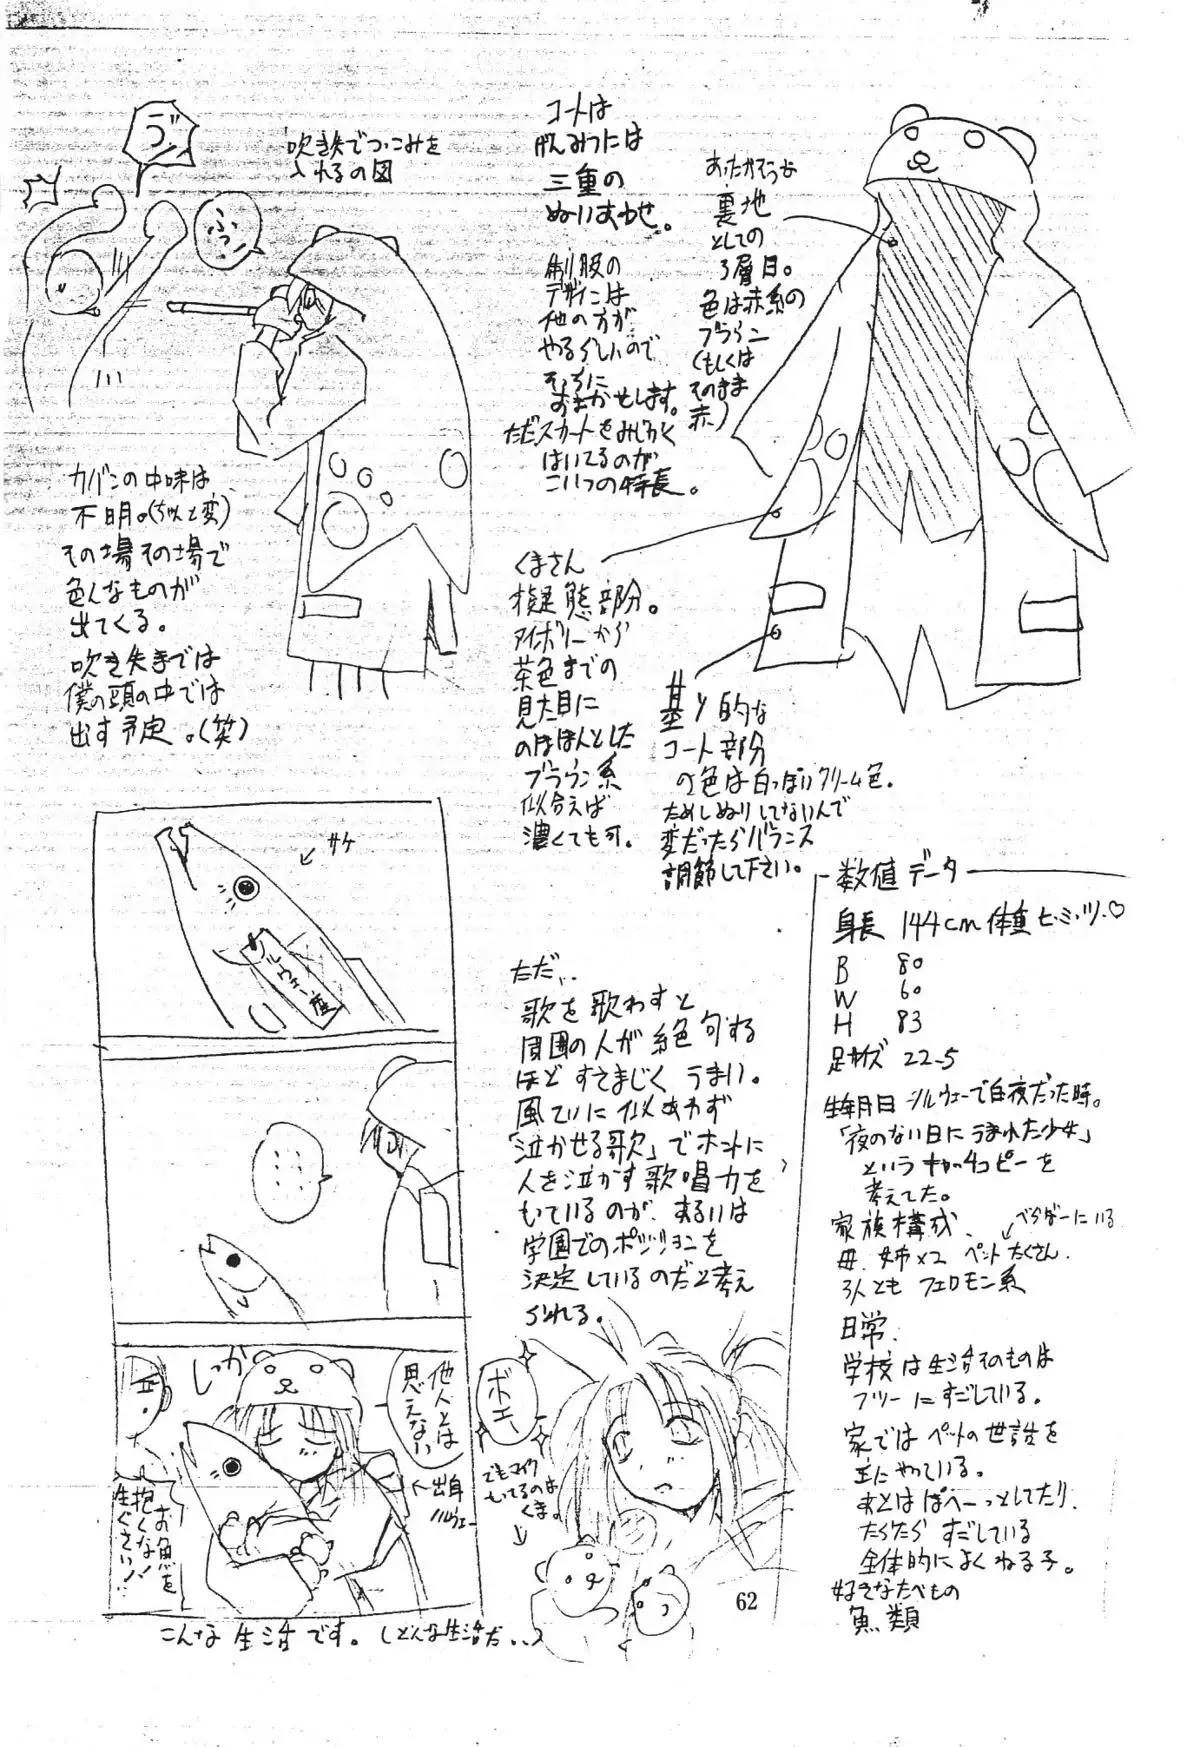 吹き矢でつっこみを
入れるの図
ふっ
カバンの中味は
不明。(ちゃんと変)
その場その場で
色んなものが
出てくる。
吹き矢までは
僕の頭の中では
出す予定。(笑)
コートは
げんみつには
三重の
ぬいあわせ。
制服の
デザインは
他の方が
やるらしいので
そっちに
おまかせします。
ただスカートをみじかく
はいてるのが
こいつの特長。
あったかそうな
裏地
としての
3層目。
色は赤系の
ブラウン
(もしくは
そのまま
赤。)
くまさん
擬態部分。
アイボリーから
茶色までの
見た目に
のほほんとした
ブラウン系
似合えば
濃くても可。
基本的な
コート部分
の色は白っぽいクリーム色。
ためしぬりしてないんで
変だったらバランス
調節して下さい。
サケ
ノルウェー産
……
しっか
他人とは
思えない
出身
ノルウェー
お魚を
抱くな!
生ぐさい!!
こんな生活です。(どんな生活だ..)
ただ..
歌を歌わすと
周囲の人が絶句する
ほどすさまじくうまい。
風ていに似あわず
「泣かせる歌」でホントに
人を泣かす歌唱力を
もているのが、あるいは
学園でのポジションを
決定しているのだと考え
られる。
ボエ〜
でもマイク
もいてるのは
くま。
数値データ
身長 144cm 体重 ヒ・ミ・ツ・♡
B 80
W 60
H 83
足サイズ 22.5
生年月日 ノルウェーで白夜だった時。
「夜のない日にうまれた少女」
というキャッチコピーを
考えてた。
家族構成
母、姉×2 ペットたくさん。
3人とも フェロモン系
日常.
学校は生活そのものは
フツーにすごしている。
家ではペットの世話を
主にやっている。
あとはぽへーっとしてたり、
たらたらすごしている
全体的によくねる子。
好きなたべもの
魚類
62